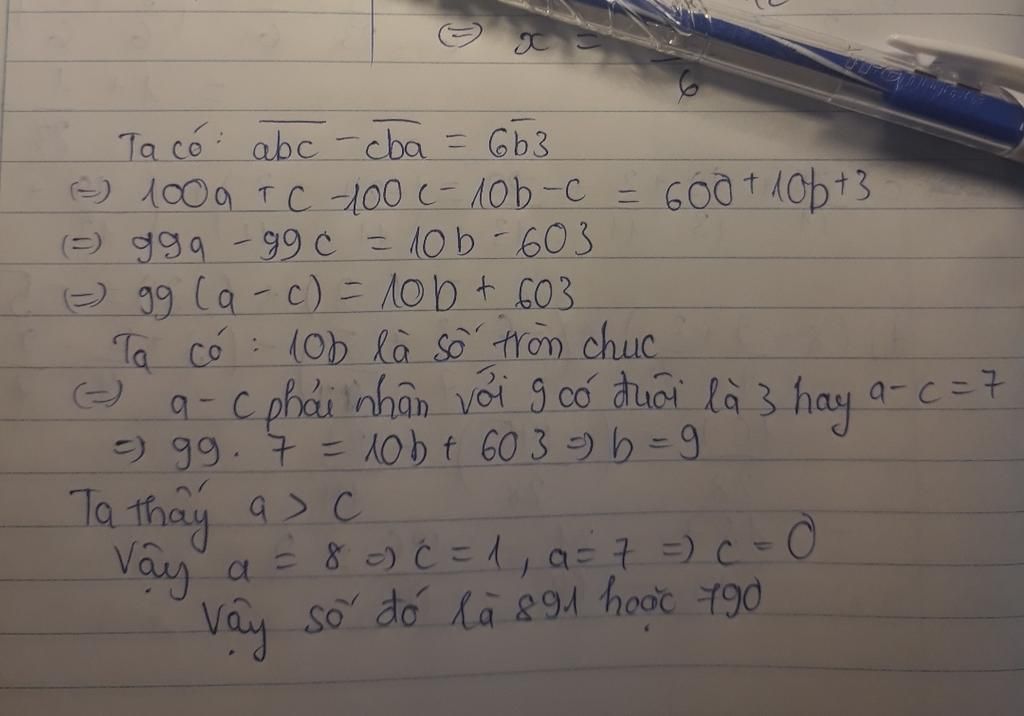 (=) x =
6
Ta có: abc - cba = 6b3
(=) 100a + c - 100c - 10b - c = 600 + 10b + 3
(=) 99a - 99c = 10b - 603
(=) 99 (a - c) = 10b + 603
Ta có : 10b là số tròn chuc
(=) a - c phải nhân với 9 có đuôi là 3 hay a - c = 7
=) 99 . 7 = 10b + 603 =) b = 9
Ta thấy a > c
Vậy a = 8 =) c = 1 , a = 7 =) c = 0
Vậy số đó là 891 hoặc 790